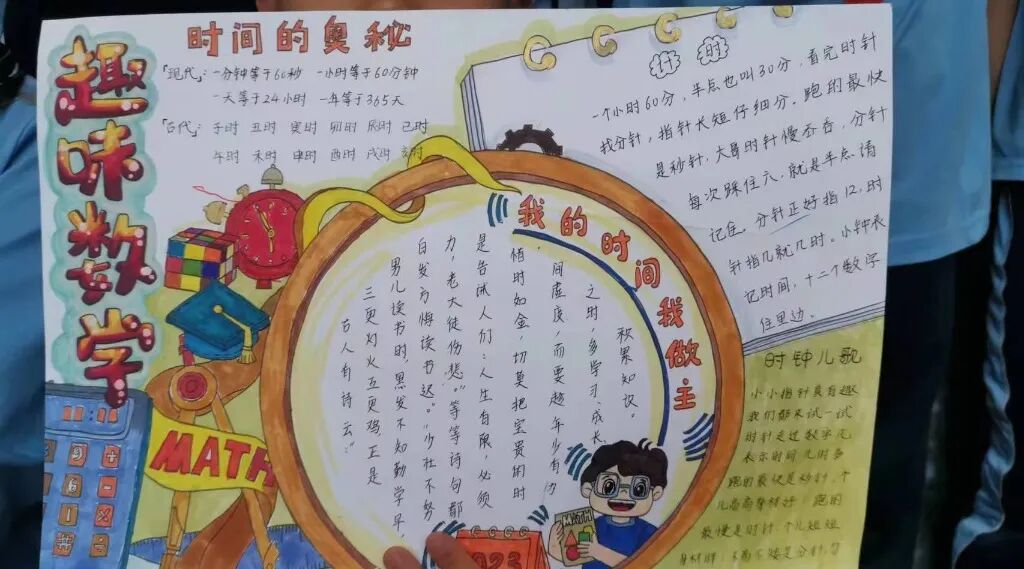 趣味数学
时间的奥秘
「现代」：一分钟等于60秒 一小时等于60分钟
一天等于24小时 一年等于365天
「古代」：子时 丑时 寅时 卯时 辰时 己时
午时 禾时 申时 酉时 戌时 亥时
时
一个小时60分，半点也叫30分，看完时针
找分针，指针长短仔细分。跑的最快
是秒针，大哥时针慢吞吞，分针
每次踩住六，就是半点请
记住。分针正好指12，时
针指几就几时。小钟表
记时间，十二个数字
住里边。
我的时间我做主
古人有诗云：“
三更灯火五更鸡，正是
男儿读书时，黑发不知勤学早，
白发方悔读书迟。”“少壮不努
力，老大徒伤悲。”等等诗句都
是告诫人们：人生有限，必须
惜时如金，切莫把宝贵的时
间虚度，而要趁年少有为
之时，多学习，成长，
积累知识。
MATH
MATH
2023
时钟儿歌
小小指针真有趣
我们都来试一试
时针走过数字几
表示时间几时多
跑的最快是秒针，个
儿高高身材好
跑的
最慢是时针，个儿短短